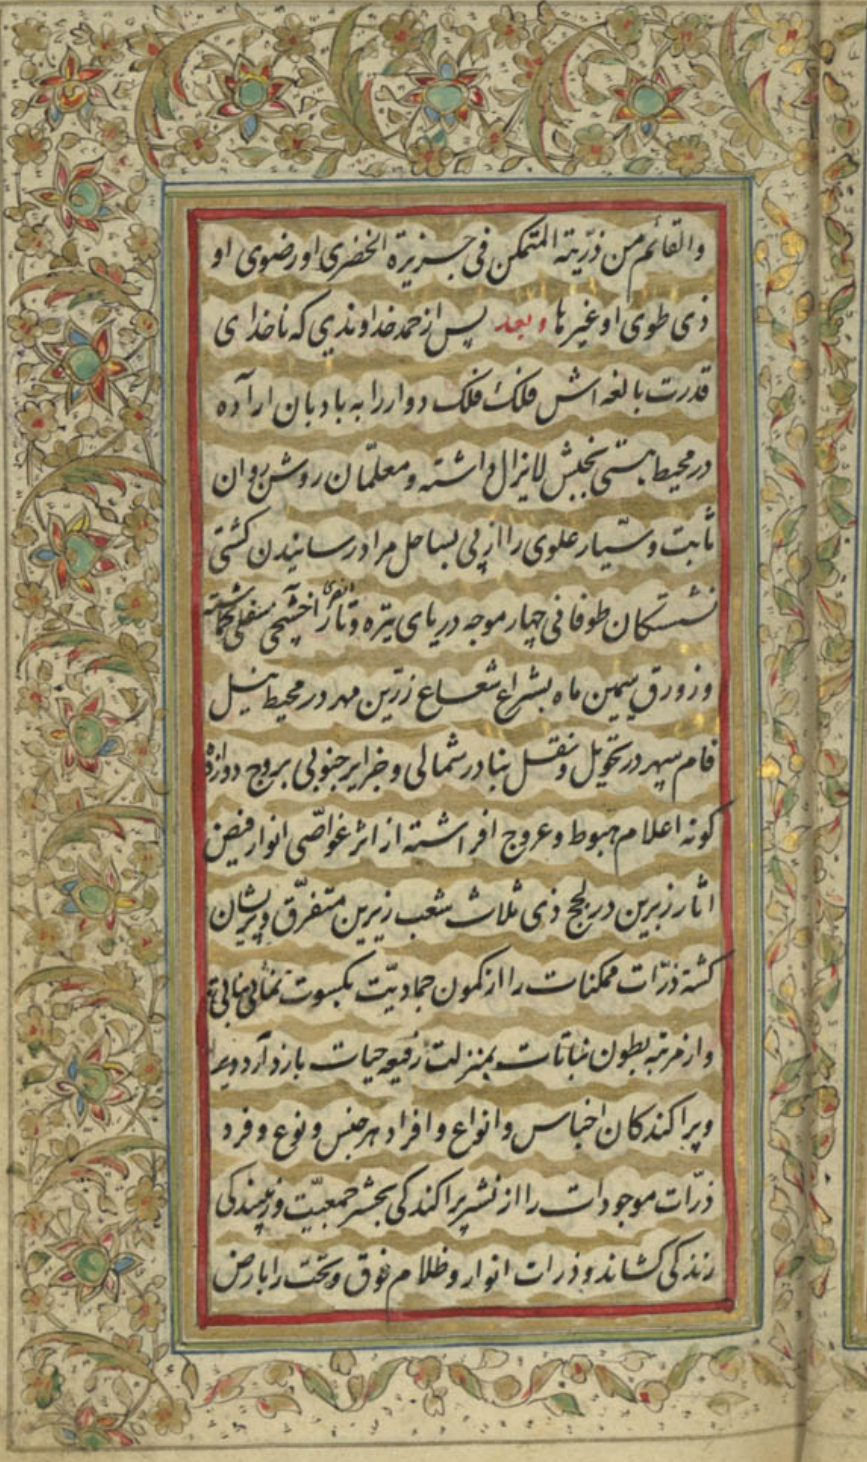 والقائم من ذرّیته المتمکن فی جزیرة الخضری او رضوی او
ذی طوی او غیرها و بعد پس از حمد خداوندی که ناخدای
قدرت بالغه اش فلک فلک دوار را به بادبان اراده
در محیط هستی بجنبش لایزال داشته و معلّمان روشن روان
ثابت و سیّار علوی را از پی بساحل مراد رسانیدن کشتی
نشستکان طوفانی چهار موجه دریای تیره و تار اخشیجی سفلی کماشته
و زورق سیمین ماه بشراع شعاع زرّین مهر در محیط نیل
فام سپهر در تحویل و نقل بنادر شمالی و جزایر جنوبی بروج دوازده
کونه اعلام هبوط و عروج افراشته از اثر غوّاصی انوار فیض
اثار زبرین در لجج ذی ثلاث شعب زیرین متفرّق و پریشان
کشته ذرّات ممکنات را از کمون جمادیّت بکسوت نمائی نباتی
و از مرتبه بطون نباتات بمنزلت رفیعه حیات باز آرد و
و پراکندکان اجناس و انواع و افراد هر جنس و نوع و فرد
ذرّات موجودات را از نشر پراکندکی بحشر جمعیّت و زیبندکی
زندکی کشاند و ذرات انوار و ظلام فوق و تحت را بارض